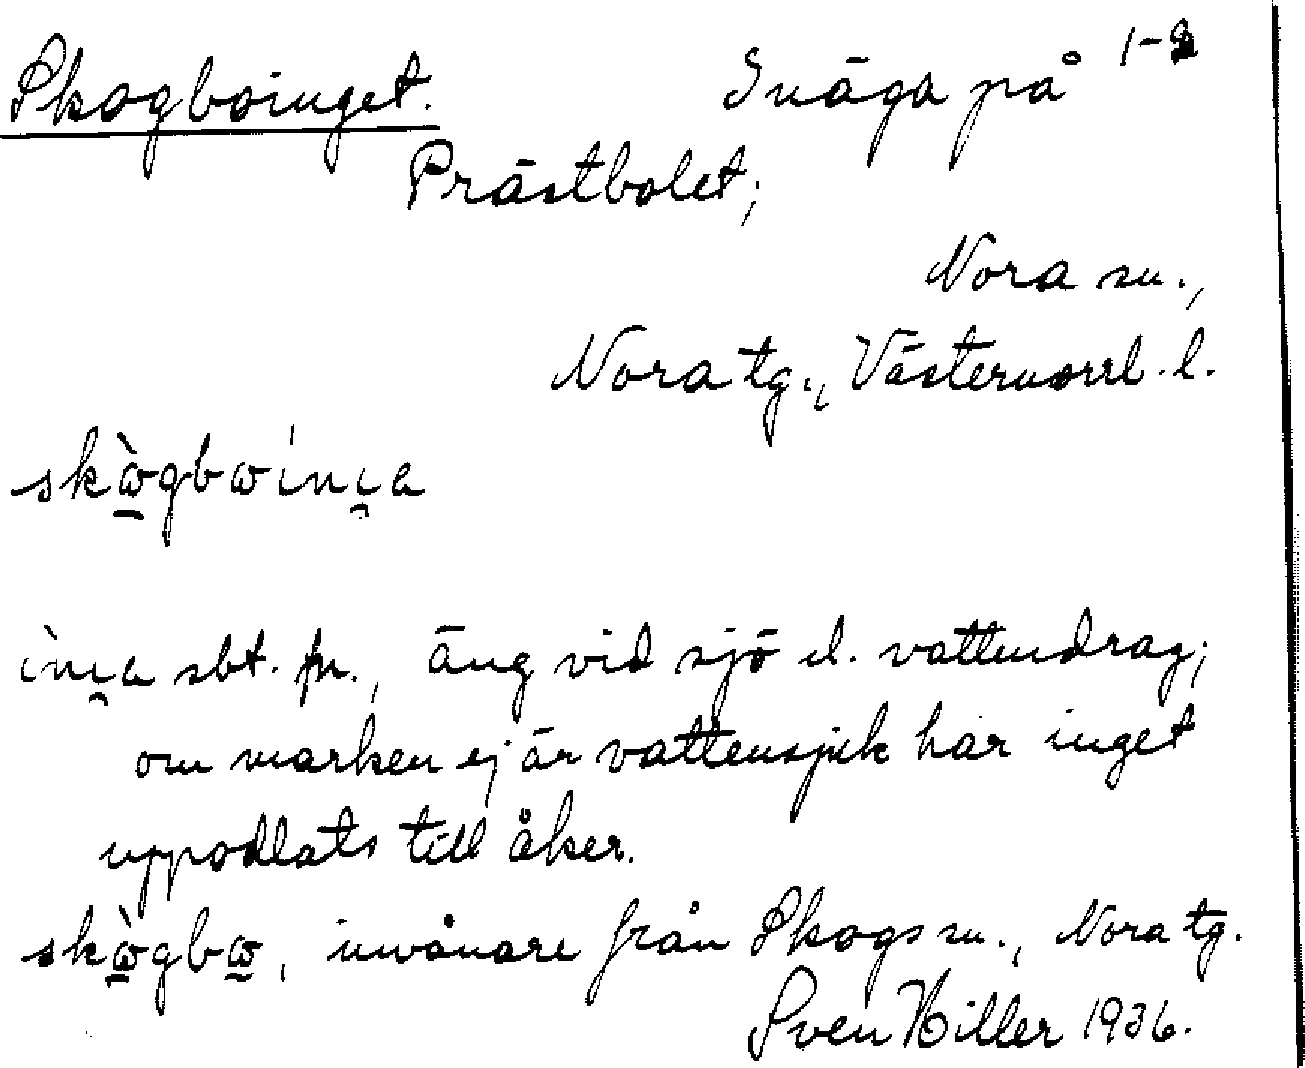 Skogboinget. Inäga på 1-2
Prästbolet;
Nora sn.,
Nora tg., Västernorrl. l.
inget
sbt. fn., äng vid sjö el. vattendrag;
om marken ej är vattensjuk har inget
uppodlats till åker.
invånare från Skogs sn., Nora tg.
Sven Hiller 1936.